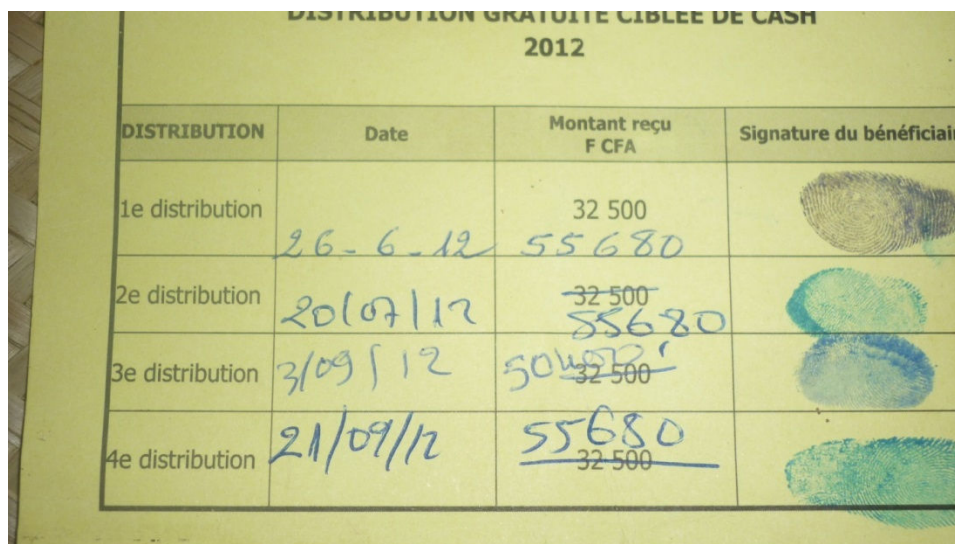 DISTRIBUTION GRATUITE CIBLEE DE CASH
2012
DISTRIBUTION Date Montant reçu F CFA Signature du
1e distribution 26-6-12 32 500 55680
2e distribution 20/07/12 32 500 55680
3e distribution 3/09/12 32 500
4e distribution 21/09/12 55680 32 500